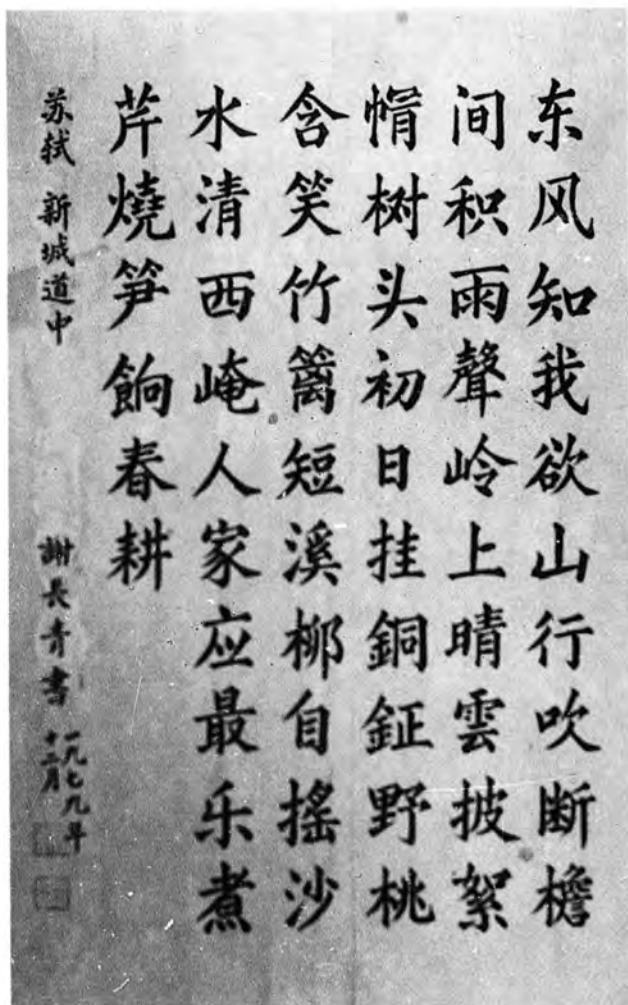 东风知我欲山行吹断檐
间积雨聲岭上晴雲披絮
帽树头初日挂銅鉦野桃
含笑竹篱短溪柳自摇沙
水清西崦人家应最乐煮
芹燒笋餉春耕
苏轼 新城道中 謝長青書 一九七九年
十二月